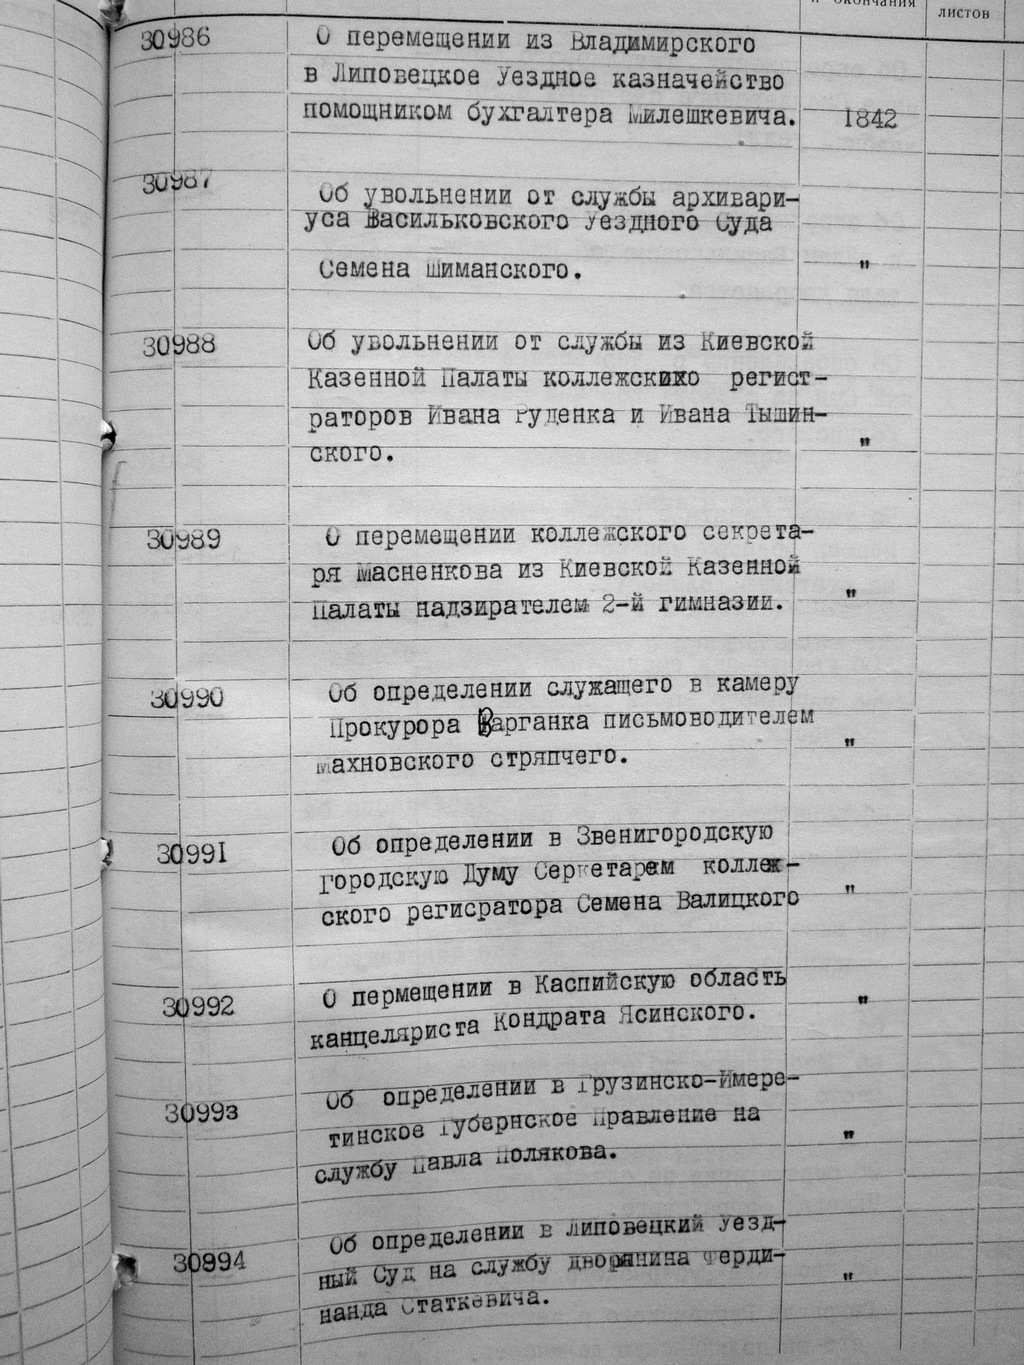 и окончания
листов
30986 О перемещении из Владимирского
в Липовецкое Уездное казначейство
помощником бухгалтера Милешкевича. 1842
30987 Об увольнении от службы архивари-
уса Васильковского Уездного Суда
Семена Шиманского. "
30988 Об увольнении от службы из Киевской
Казенной Палаты коллежских регист-
раторов Ивана Руденка и Ивана Тышин-
ского. "
30989 О перемещении коллежского секрета-
ря Масненкова из Киевской Казенной
Палаты надзирателем 2-й гимназии. "
30990 Об определении служащего в камеру
Прокурора Варганка письмоводителем
Махновского стряпчего. "
30991 Об определении в Звенигородскую
Городскую Думу Серкетарем коллеж-
ского регисратора Семена Валицкого "
30992 О пермещении в Каспийскую область "
канцеляриста Кондрата Ясинского.
30993 Об определении в Грузинско-Имере-
тинское Губернское Правление на
службу Павла Полякова. "
30994 Об определении в Липовецкий Уезд-
ный Суд на службу дворянина Ферди-
нанда Статкевича. "